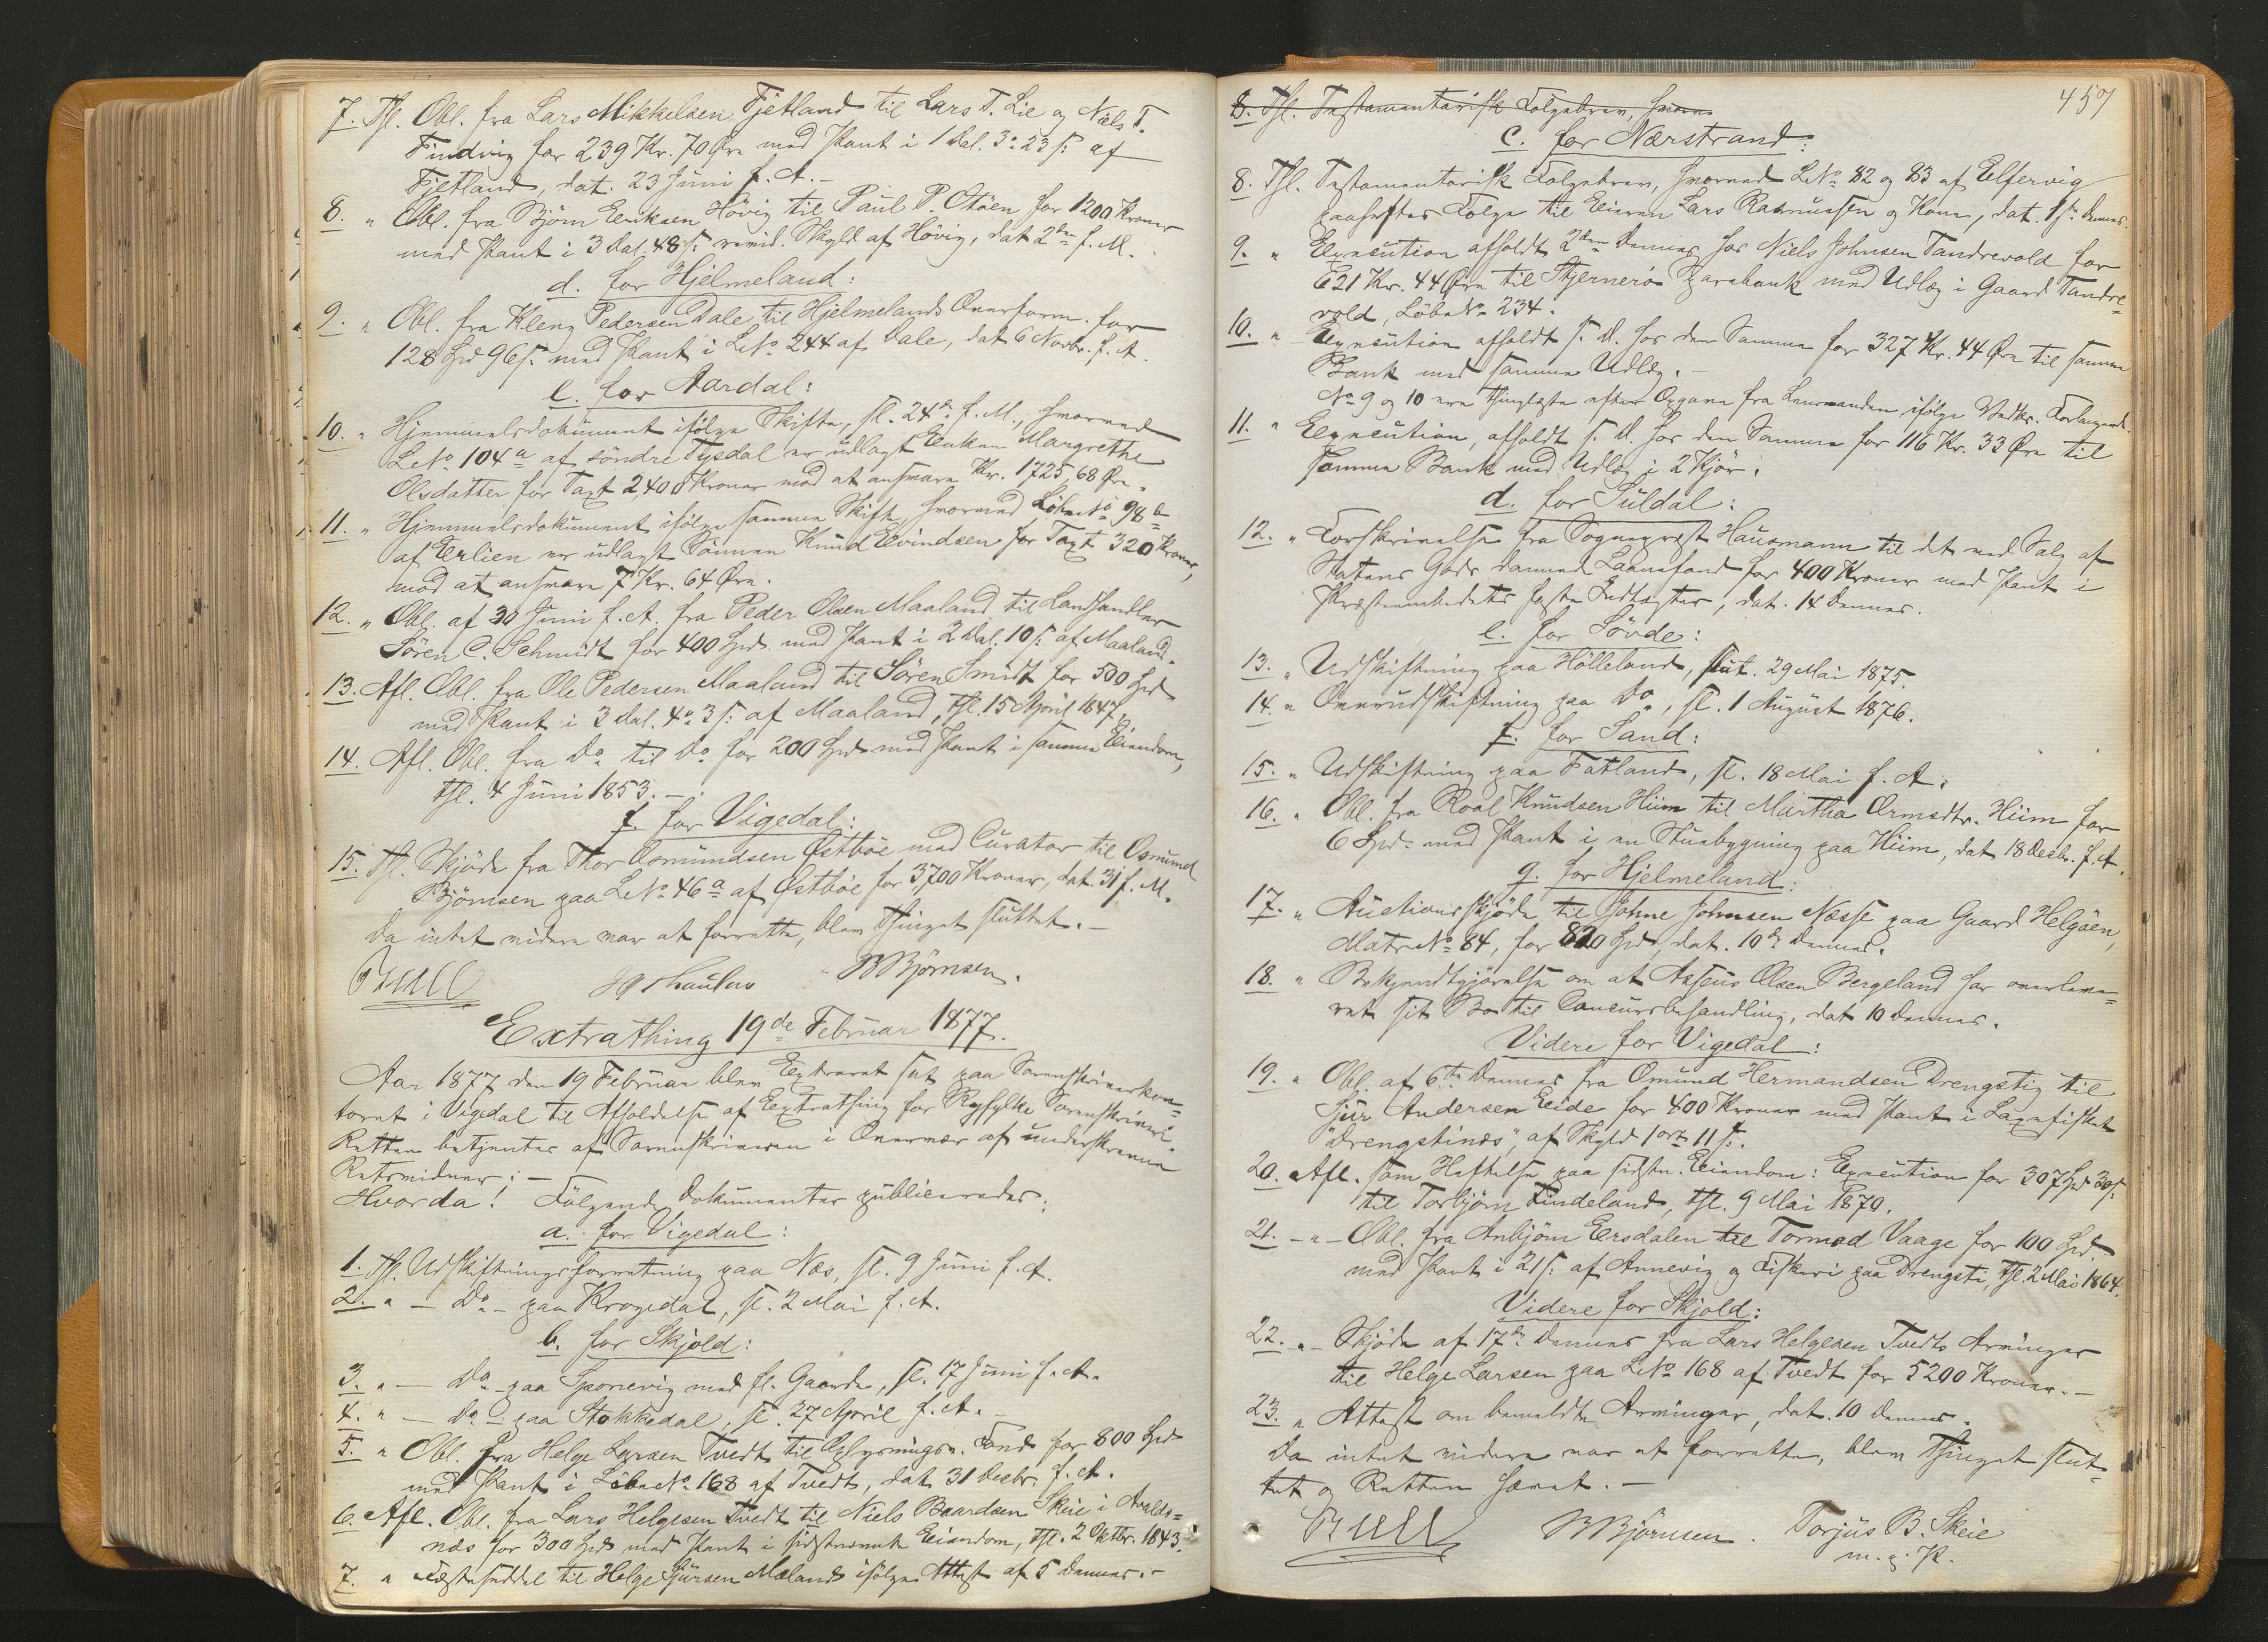 7. Tl. Obl. fra Lars Mikkelsen Fjetland til Lars T. Lie og Niels T.
Findvig for 239 Kr. 70 Øre med Pant i 1 Dal. 3 o: 23 s: af
Fjetland, dat. 23 Juni f. A.-
8. " Obl. fra Bjørn Eriksen Høvig til Paul P. Otøen for 1200 Kroner
med Pant i 3 Dal. 48 s: revid. Skyld af Høvig, dat 2den f. M.
d. for Hjelmeland:
9. " Obl. fra Kleng Pedersen Dale til Hjelmelands Overform. for
128 Spd 96 s: med Pant i LNo. 244 af Dale, dat 6 Novbr. f. A.
e. for Aardal:
10. " Hjemmelsdokument ifølge Skifte, sl. 24de f. M., hvorved
LNo. 104a af søndre Tysdal er udlagt Enken Margrethe
Olsdatter for Taxt 2,400 Kroner mod at ansvare Kr. 1725,68 Øre.
11. " Hjemmelsdokument ifølge samme Skifte hvorved LøbeNo 98b
af Erlien er udlagt Sønnen Knud Eivindsen for Taxt 320 Kroner,
mod at ansvare 7 Kr. 64 Øre.
12. " Obl. af 30 Juni f. A. fra Peder Olsen Maaland til Landhandler
Søren C. Schmidt for 400 Spd. med Pant i 2 Dal. 10 s: af Maaland.
13. Afl. Obl. fra Ole Pedersen Maaland til Søren Smidt for 500 Spd
med Pant i 3 Dal. 4 o: 3 s: af Maaland, tl. 15 April 1847.
14. Afl. Obl. fra Do til Do for 200 Spd med Pant i samme Eiendom,
tl. 4 Juni 1853.-
f. for Vigedal:
15. Tl. Skjøde fra Thor Osmundsen Østbøe med Curator til Osmund
Bjørnsen paa LNo. 46a af Østbøe for 3,700 Kroner, dat. 31 f. M.
Da intet videre var at forrette, blev Thinget sluttet.-
Bull B Bjørnsen.
Extrathing 19de Februar 1877.
Aar 1877 den 19 Februar blev Extraret sat paa Sorenskriverkon-
toret i Vigedal til Afholdelse af Extrathing for Ryfylke Sorenskriveri.
Retten betjentes af Sorenskriveren i Overvær af underskrevne
Retsvidner:-
Hvorda! Følgende Dokumenter publiceredes:
a. for Vigedal:
1. Tl. Udskiftningsforretning paa Næs, sl. 9 Juni f. A.
2. " - Do - paa Krogedal, sl. 2 Mai f. A.
b. for Skjold:
3. " - Do - paa Sponevig med fl. Gaarde, sl. 17 Juni f. A.
4. " - Do - paa Stokkedal, sl. 27 April f. A.
5. " Obl. fra Helge Larsen Tvedt til Oplysningsv. Fond for 800 Spd
med Pant i LøbeNo. 168 af Tvedt, dat 31 Decbr. f. A.
6. Afl. Obl. fra Lars Helgesen Tvedt til Niels Baardsen Skeie i Avalds-
næs for 300 Spd med Pant i sidstnævnte Eiendom, tl. 2 Oktbr. 1843.
7. " Fæsteseddel til Helge Sjursen Mæland ifølge Attest af 5 dennes.-
457
8. Tl. Testamentarisk Følgebrev, hvorv
c. for Nærstrand:
8. Tl. Testamentarisk Følgebrev, hvorved LNo. 82 og 83 af Elfervig
paaheftes Følge til Eieren Lars Rasmussen og Kone, dat. 1ste dennes.
9. " Execution afholdt 2den dennes hos Niels Johnsen Tandrevold for
621 Kr. 44 Øre til Stjernerø Sparebank med Udlæg i Gaard Tandre-
vold, LøbeNo. 234.
10. " Execution afholdt s. D. hos den Samme for 327 Kr. 44 Øre til samme
Bank med samme Udlæg.-
No. 9 og 10 ere thinglæste efter Opgave fra Lensmanden ifølge Vedk. Forlangende.
11. " Execution, afholdt s. D. hos den Samme for 116 Kr. 33 Øre til
samme Bank med Udlæg i 2 Kjør.
d. for Suldal:
12. " Forskrivelse fra Sognepræst Hausmann til det ved Salg af
Statens Gods dannede Laanefond for 400 Kroner med Pant i
Præsteembedets faste Indtægter, dat. 14 dennes.
e. for Søvde:
13. " Udskiftning paa Hølleland, slut. 29 Mai 1875.
14. " Overudskiftning paa Do, sl. 1 August 1876.
f. for Sand:
15. " Udskiftning paa Fatland, sl. 18 Mai f. A.
16. " Obl. fra Roal Knudsen Hiim til Martha Ormsdtr. Hiim for
6 Spd. med Pant i en Stuebygning paa Hiim, dat 18 Decbr. f. A.
g. for Hjelmeland:
17. " Auctionsskjøde til Johne Johnsen Næsse paa Gaard Helgøen,
MatrNo. 84, for 820 Spd, dat. 10de dennes.
18. " Bekjendtgjørelse om at Asseus Olsen Bergeland har overleve-
ret sit Bo til Concursbehandling, dat 10 dennes.
Videre for Vigedal:
19. " Obl. af 6te dennes fra Omund Hermandsen Drengstig til
Sjur Andersen Eide for 400 Kroner med Pant i Laxefisket
"Drengstinæs", af Skyld 1 ort 11 s:.
20. Afl. som Heftelse paa sidstn. Eiendom: Execution for 307 Spd 30 s:
til Torbjørn Tindeland, tl. 9 Mai 1870.
21. - " - Obl. fra Anbjørn Ersdalen til Tormod Vaage for 100 Spd.
med Pant i 21 s: af Annevig og Fiskeri paa Drengsti, tl. 2 Mai 1864.
Videre for Skjold:
22. " - Skjøde af 17de dennes fra Lars Helgesen Tvedts Arvinger
til Helge Larsen paa LNo 168 af Tvedt for 5200 Kroner.-
23. " Attest om bemeldte Arvinger, dat. 10 dennes.
Da intet videre var at forrette, blev Thinget slut-
tet og Retten hævet.-
Bull B Bjørnsen. Torjus B. Skeie
m. p. P.